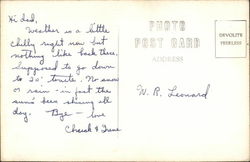 Hi dad,
Weather is a little
chilly right now but
nothing like back there.
Supposed to go down
to 20° tonite. No snow
or rain - in fact the
sun's been shining all
day. Bye - love
Chuck &
PHOTO
POST CARD
ADDRESS
DEVOLITE
PEERLESS
W. R. Leonard